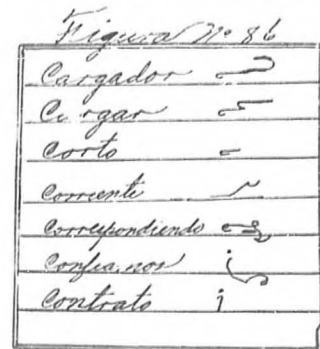 Figura Nº 86
Cargador
Cargar
Corto
Corriente
Correspondiendo
Confianos
Contrato